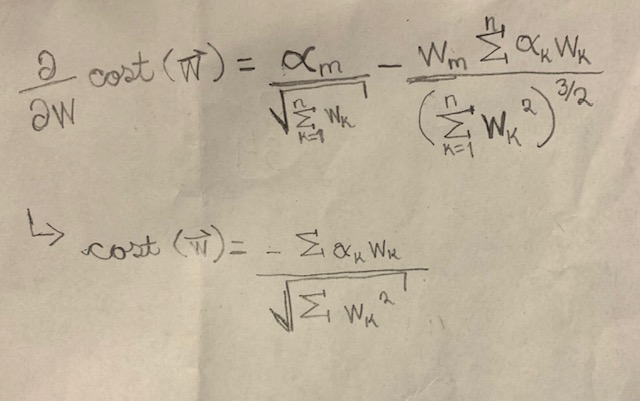 ∂/∂W cost(W⃗) = α_m / √(∑_{k=1}^{n} W_k) − W_m ∑^{n} α_k W_k / (∑_{k=1}^{n} W_k²)^{3/2}
↳ cost(W⃗) = − ∑ α_k W_k / √(∑ W_k²)